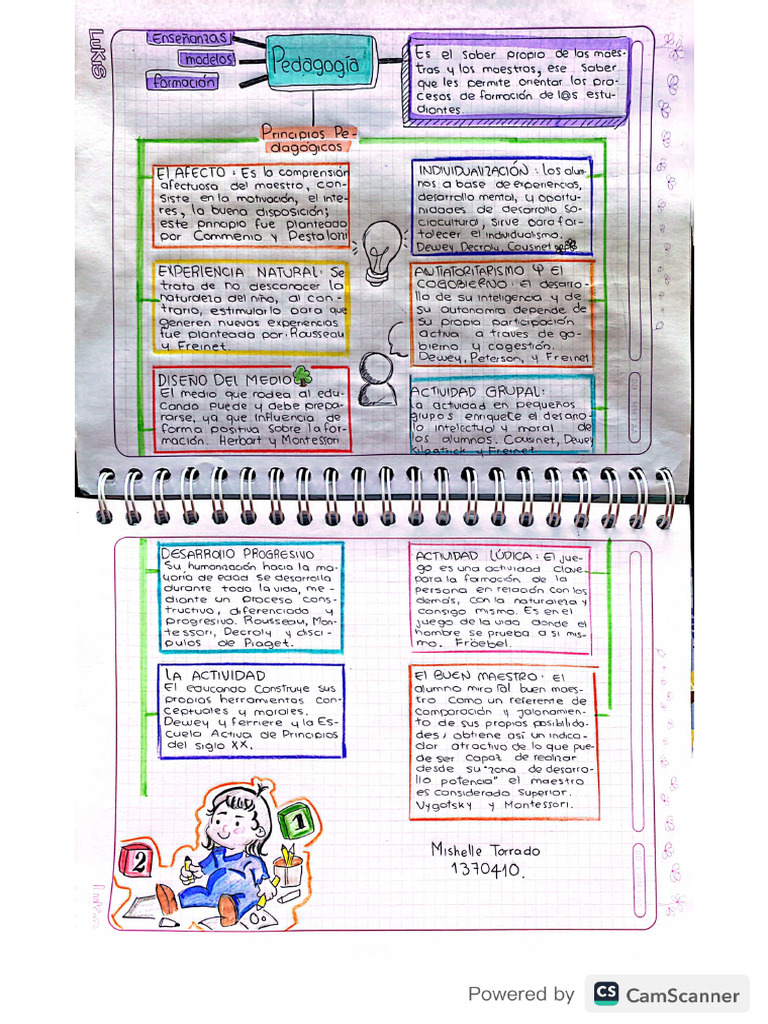 LUKIS
Enseñanzas
modelos
formación
Pedagogía
Es el saber propio de las maes-
tras y los maestros, ese saber
que les permite orientar los pro-
cesos de formación de l@s estu-
diantes.
Principios Pe-
dagógicos
El AFECTO: Es la comprensión
afectuosa del maestro, con-
siste en la motivación, el inte-
res, la buena disposición;
este principio fue planteado
por Commenio y Pestalozi
INDIVIDUALIZACIÓN: los alum-
nos a base de experiencias,
desarrollo mental, y oportu-
nidades de desarrollo so-
ciocultural, sirve para for-
talecer el individualismo.
Dewey, Decroly, Cousinet
EXPERIENCIA NATURAL: Se
trata de no desconocer la
naturaleza del niño, al con-
trario, estimularlo para que
generen nuevas experiencias
fue planteada por: Rousseau
y Freinet.
ANTIATORITARISMO Y El
COGOBIERNO: El desarro-
llo de su inteligencia y de
su autonomia depende de
su propia participación
activa a través de go-
bierno y cogestión.
Dewey, Peterson, y Freinet
DISEÑO DEL MEDIO
El medio que rodea al edu-
cando puede y debe prepa-
rarse, ya que influencia de
forma positiva sobre la for-
mación. Herbart y Montessori
ACTIVIDAD GRUPAL:
La actividad en pequeños
grupos enriquece el desarro-
llo intelectual y moral de
los alumnos. Cousinet, Dewey
Kilpatrick y Freinet.
DESARROllO PROGRESIVO
Su humanización hacia la ma-
yoría de edad se desarrolla
durante toda la vida, me-
diante un proceso cons-
tructivo, diferenciado y
progresivo. Rousseau, Mon-
tessori, Decroly y disci-
pulos de Piaget.
ACTIVIDAD LÚDICA: El jue-
go es una actividad clave
para la formación de la
persona en relación con los
demás, con la naturaleza y
consigo mismo. Es en el
juego de la vida donde el
hombre se prueba a si mis-
mo. Fröebel.
LA ACTIVIDAD
El educando construye sus
propias herramientas con-
ceptuales y morales.
Dewey y ferriere y la Es-
cuela Activa de Principios
del siglo XX.
El BUEN MAESTRO: El
alumno mira al buen maes-
tro como un referente de
comparación y jalonamien-
to de sus propias posibilida-
des, obtiene así un indica-
dor atractivo de lo que pue-
de ser capaz de realizar
desde su "zona de desarro-
llo potencia" el maestro
es considerado superior.
Vygotsky y Montessori.
1
2
Mishelle Torrado
1370410.
Powered by CS CamScanner